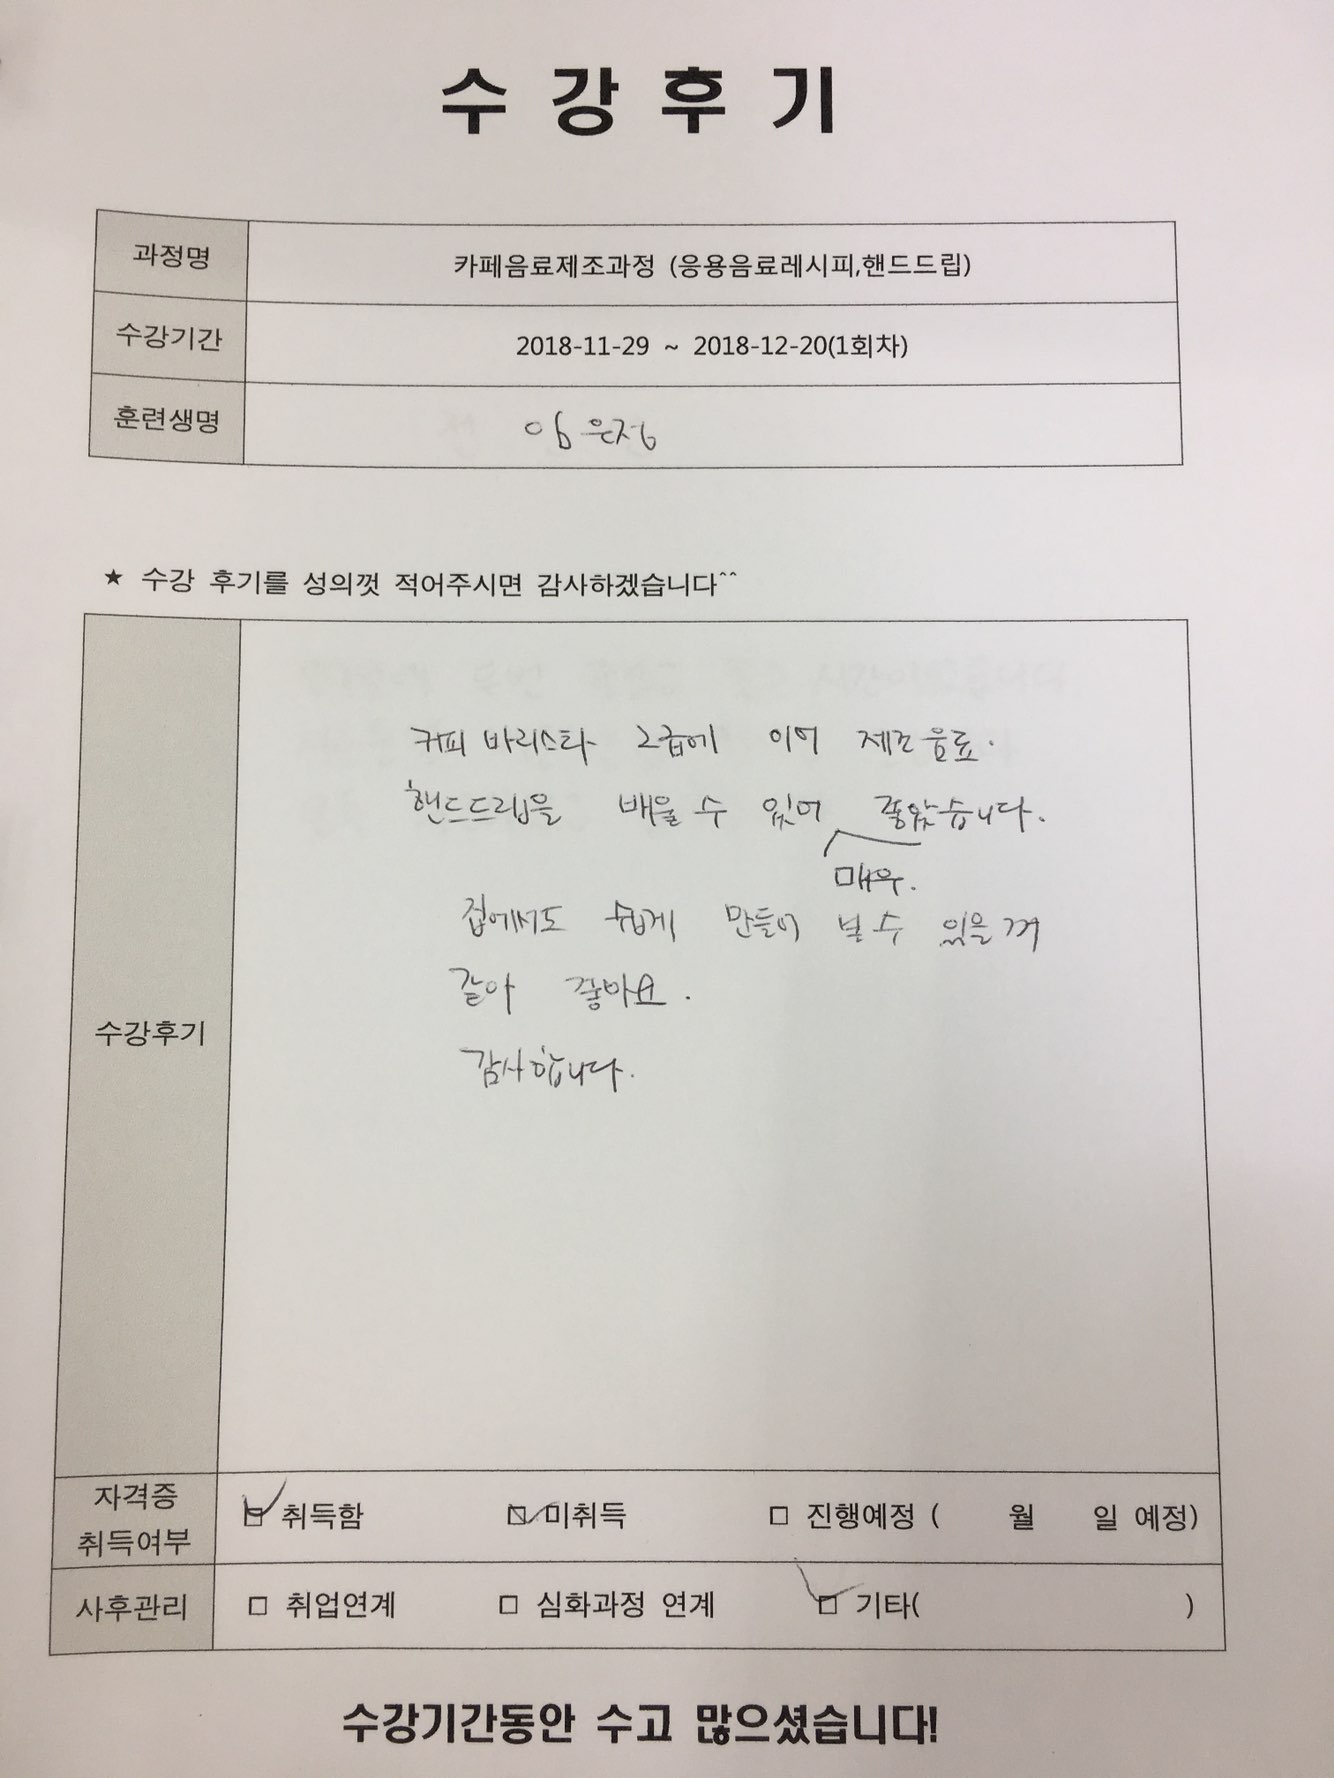 수강후기
과정명 카페음료제조과정 (응용음료레시피,핸드드립)
수강기간 2018-11-29 ~ 2018-12-20(1회차)
훈련생명 임은정
★ 수강 후기를 성의껏 적어주시면 감사하겠습니다^^
커피 바리스타 2급에 이어 제조음료.
핸드드립을 배울 수 있어 좋았습니다.
매우.
집에서도 쉽게 만들어 볼 수 있을꺼
같아 좋아요.
감사합니다.
수강후기
자격증
취득여부
□ 취득함 □ 미취득 □ 진행예정 ( 월 일 예정)
사후관리 □ 취업연계 □ 심화과정 연계 □ 기타( )
수강기간동안 수고 많으셨습니다!